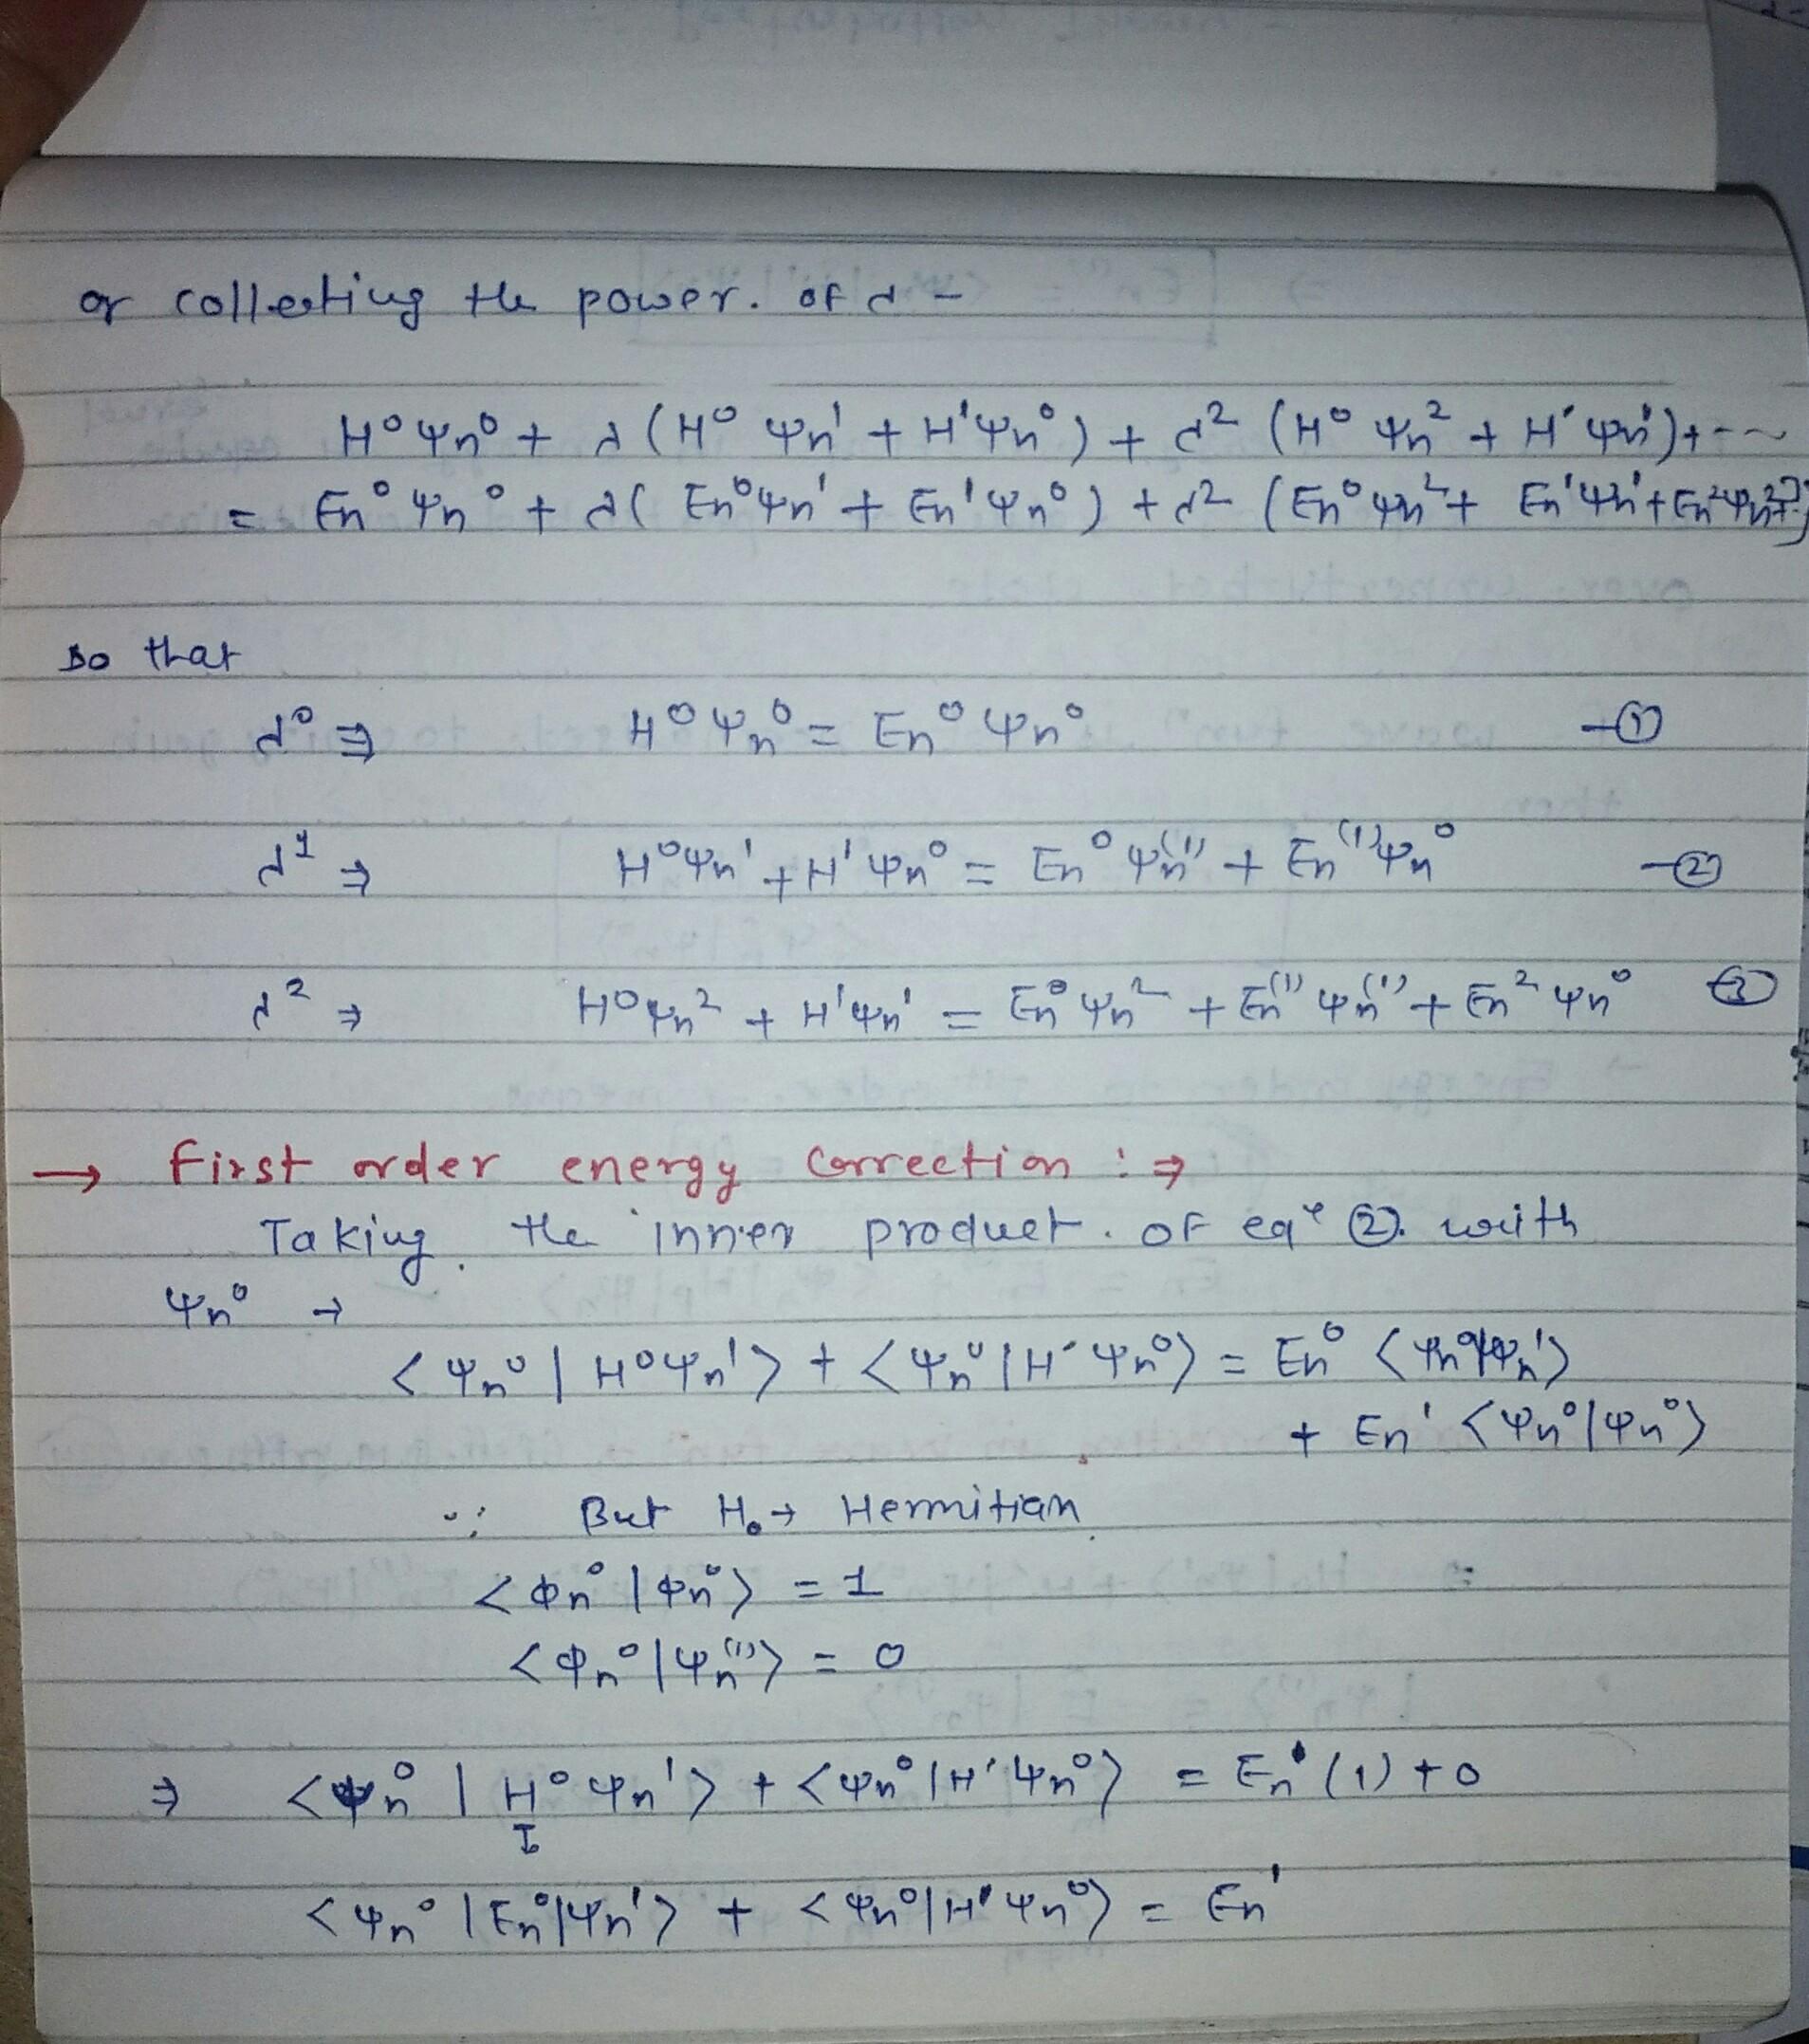 or collecting the power. of λ -
H⁰ψn⁰ + λ (H⁰ ψn' + H'ψn⁰) + λ² (H⁰ ψn² + H'ψn')+---
= En⁰ ψn⁰ + λ( En⁰ψn' + En'ψn⁰) + λ² (En⁰ψn²+ En'ψn'+En²
so that
λ⁰ ⇒ H⁰ψn⁰ = En⁰ ψn⁰ -①
λ¹ ⇒ H⁰ψn' + H'ψn⁰ = En⁰ ψn⁽¹⁾ + En⁽¹⁾ψn⁰ -②
λ² ⇒ H⁰ψn² + H'ψn' = En⁰ ψn² + En⁽¹⁾ ψn⁽¹⁾ + En² ψn⁰ -③
→ First order energy Correction : ⇒
Taking the inner product. of eqⁿ ②. with
ψn⁰ →
<ψn⁰ | H⁰ψn'> + <ψn⁰ |H' ψn⁰> = En⁰ <ψn⁰|ψn'>
+ En' <ψn⁰|ψn⁰>
∵ But H₀→ Hermitian
<φn⁰ |φn⁰> = 1
<φn⁰|ψn⁽¹⁾> = 0
⇒ <ψn⁰ | H⁰ ψn'> + <ψn⁰|H' ψn⁰> = En' (1) + 0
I
<ψn⁰ |En⁰|ψn'> + <ψn⁰|H' ψn⁰> = En'